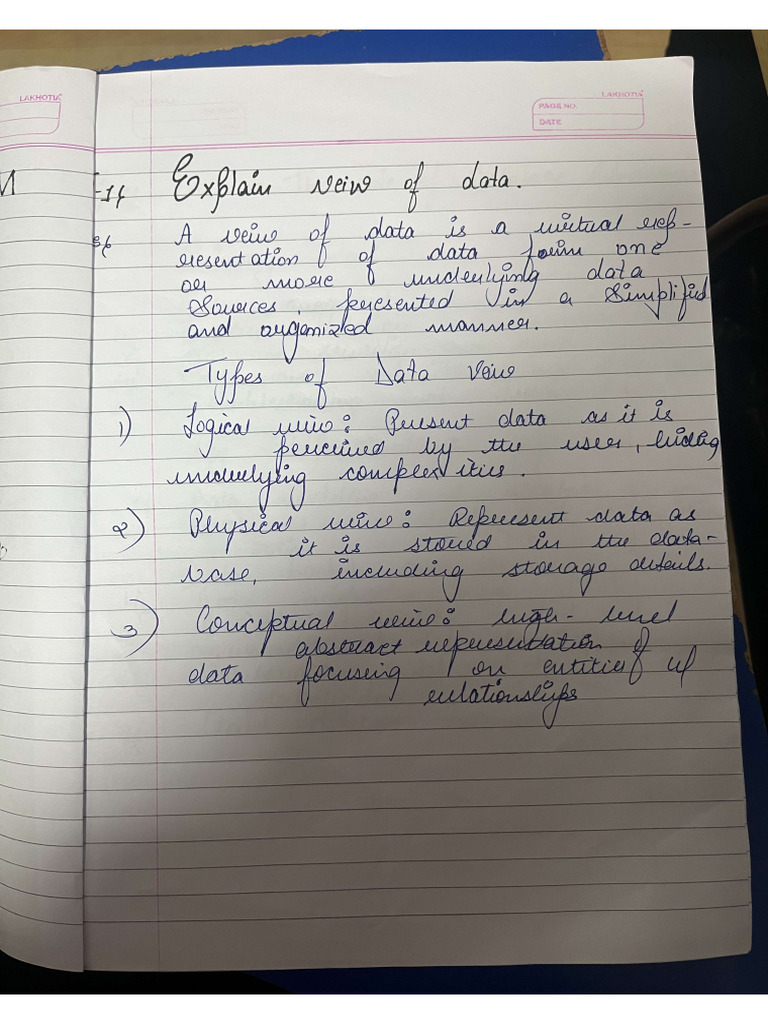 LAKHOTIA
LAKHOTIA
PAGE NO.
DATE
Explain veiw of data.
A veiw of data is a virtual rep-
resentation of data form one
or more underlying data
Sources, presented in a Simplified
and organized manner.
Types of Data Veiw
1) Logical veiw: Present data as it is
perceived by the user, hiding
underlying complexities.
2) Physical veiw: Represent data as
it is stored in the data-
base, including storage details.
3) Conceptual veiw: high-level
abstract representation of
data focusing on entities
relationships